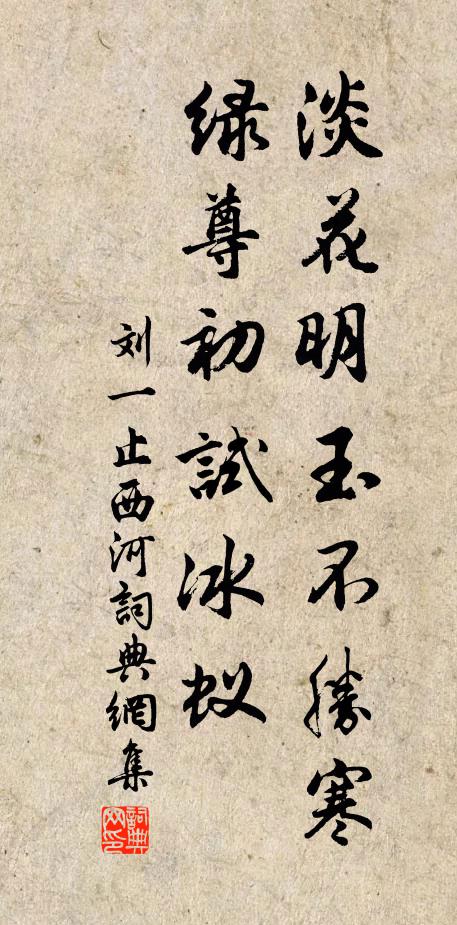 淡花明玉不勝寒
绿尊初試冰蚁
刘一止西河詞典網集
詞典网印